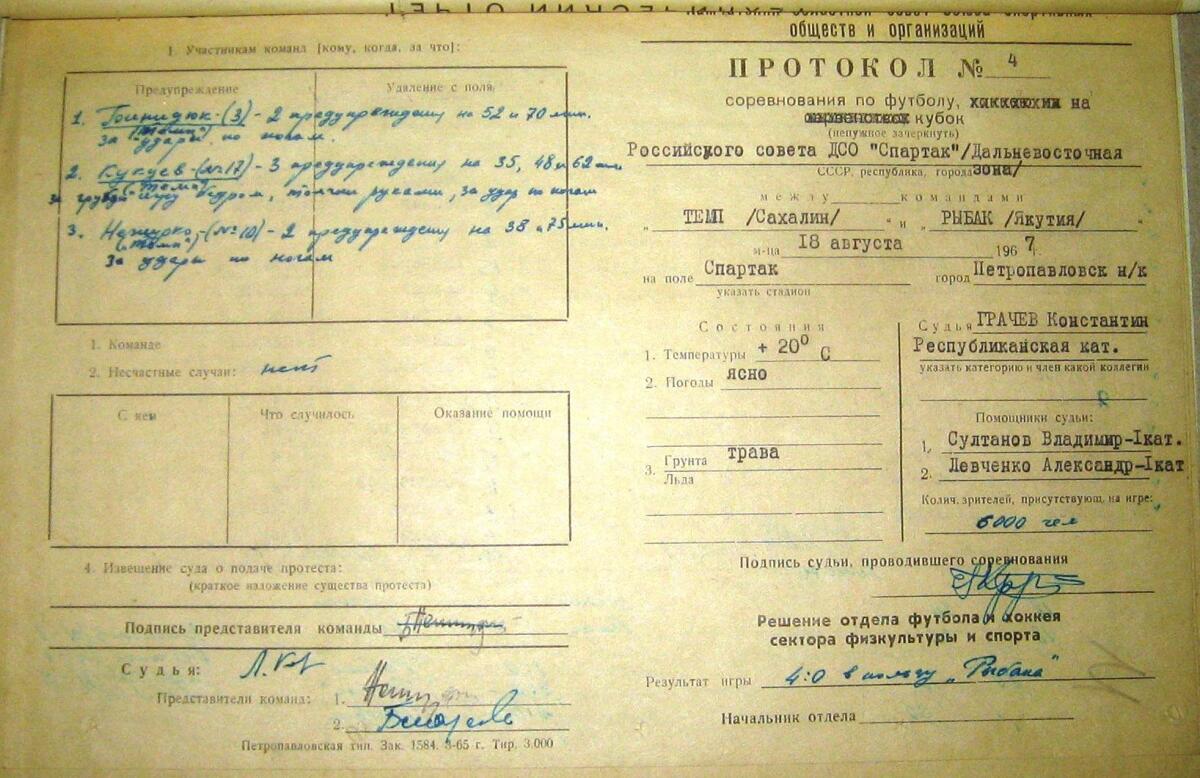 1. Участникам команд [кому, когда, за что]:
Предупреждение
Удаление с поля
1. (3) - 2 предупреждения на 52 и 70 мин.
("Темп")
за удары по ногам.
2. Кукуев - (№17) - 3 предупреждения на 35, 48 и 62 мин
("Темп")
за грубую игру бедром, толчки руками, за удар по ногам
3. (№10) - 2 предупреждения на 38 и 75 мин.
("Темп")
За удары по ногам
1. Команде
2. Несчастные случаи: нет
С кем
Что случилось
Оказание помощи
4. Извещение суда о подаче протеста:
(краткое изложение существа протеста)
Подпись представителя команды
Судья:
Представители команд: 1.
2.
Петропавловская тип. Зак. 1584. 3-65 г. Тир. 3.000
обществ и организаций
ПРОТОКОЛ № 4
соревнования по футболу, на
кубок
(ненужное зачеркнуть)
Российского совета ДСО "Спартак"/Дальневосточная
СССР, республика, города зона/
между командами
"ТЕМП /Сахалин/ " и "РЫБАК /Якутия/ "
м-ца 18 августа 1967 г.
на поле Спартак город Петропавловск н/к
указать стадион
Состояния
1. Температуры + 20° С
2. Погоды ясно
3. Грунта трава
Льда
Судья ГРАЧЕВ Константин
Республиканская кат.
указать категорию и член какой коллегии
Помощники судьи:
1. Султанов Владимир-Iкат.
2. Левченко Александр-Iкат
Колич. зрителей, присутствующ. на игре:
6000 чел
Подпись судьи, проводившего соревнования
Решение отдела футбола и хоккея
сектора физкультуры и спорта
Результат игры 4:0 в пользу "Рыбака"
Начальник отдела